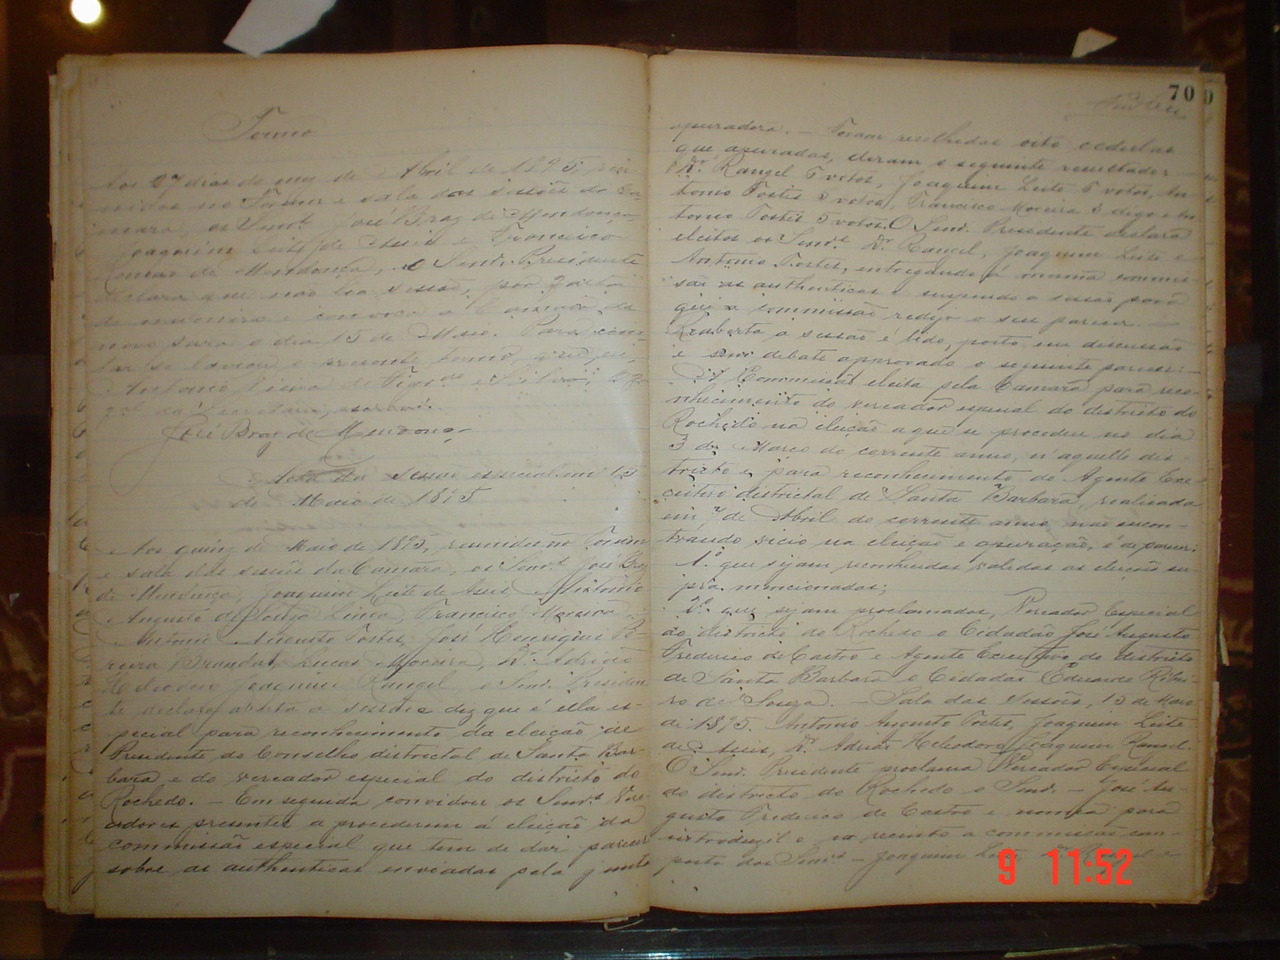 Termo
Aos 27 dias do mez de Abril de 1895, reu-
nidos no Forum e sala das sessões da Ca-
mara, os Senrs. José Braz de Mendonça
Joaquim Leite de Assis e Francisco
de Mendonça, o Senr. Presidente
declara que não ha sessão, por falta
de numero e convoca a Camara de
novo para o dia 15 de Maio. Para cons-
tar se lavrou o presente termo, que eu,
Antonio de e Silva,
da Secretaria, escrevi.
José Braz de Mendonça
Acta da Sessão especial em 15
de Maio de 1895
Aos quinze de Maio de 1895, reunidos no Forum
e sala das sessões da Camara, os Senrs. José Braz
de Mendonça, Joaquim Leite de Assis, Antonio
Augusto de Souza Lima, Francisco Moreira
Antonio Augusto Tostes, José Henriques Pe-
reira Brandão, Lucas Moreira, Dr. Adrião
Heliodoro Joaquim Rangel o Senr. Presiden-
te declara aberta a sessão e diz que é ella es-
pecial para reconhecimento da eleição de
Presidente do Conselho districtal de Santa Bar-
bara e do vereador especial do districto do
Rochedo. — Em seguida convidou os Senrs. Vere-
adores presentes a procederem á eleição da
commissão especial que tem de dar parecer
sobre as authenticas enviadas pela junta
70
apuradora. — Foram recolhidas oito cedulas
que apuradas, deram o seguinte resultado
Dr. Rangel 6 votos, Joaquim Leite 6 votos, An-
tonio Tostes 5 votos, Francisco Moreira 3 digo e An-
tonio Tostes 5 votos. O Senr. Presidente declara
eleitos os Senrs. Dr. Rangel, Joaquim Leite e
Antonio Tostes, entregando á mesma commis-
são as authenticas e suspende a sessão para
que a commissão redija o seu parecer. —
Reaberta a sessão é lido, posto em discussão
e sem debate approvado o seguinte parecer: —
A Commissão eleita pela Camara para reco-
nhecimento do vereador especial do districto do
Rochedo na eleição a que se procedeu no dia
3 de Março do corrente anno, n'aquelle dis-
tricto e para reconhecimento do Agente Exe-
cutivo districtal de Santa Barbara, realisada
em 7 de Abril do corrente anno, não encon-
trando vicio na eleição e apuração, é de parecer:
1.º que sejam reconhecidas validas as eleições su-
pra mencionadas;
2.º que sejam proclamados, Vereador Especial
do districto do Rochedo o Cidadão José Augusto
Frederico de Castro e Agente Executivo do districto
de Santa Barbara o Cidadão Eduardo Ribei-
ro de Souza. — Sala das Sessões, 15 de Maio
de 1895. Antonio Augusto Tostes, Joaquim Leite
de Assis, Dr. Adrião Heliodoro Joaquim Rangel.
O Senr. Presidente proclama Vereador Especial
do districto do Rochedo o Senr. — José Au-
gusto Frederico de Castro e nomeia para
introduzil-o no recinto a commissão com-
posta dos Senrs — Joaquim Leite
9 11:52